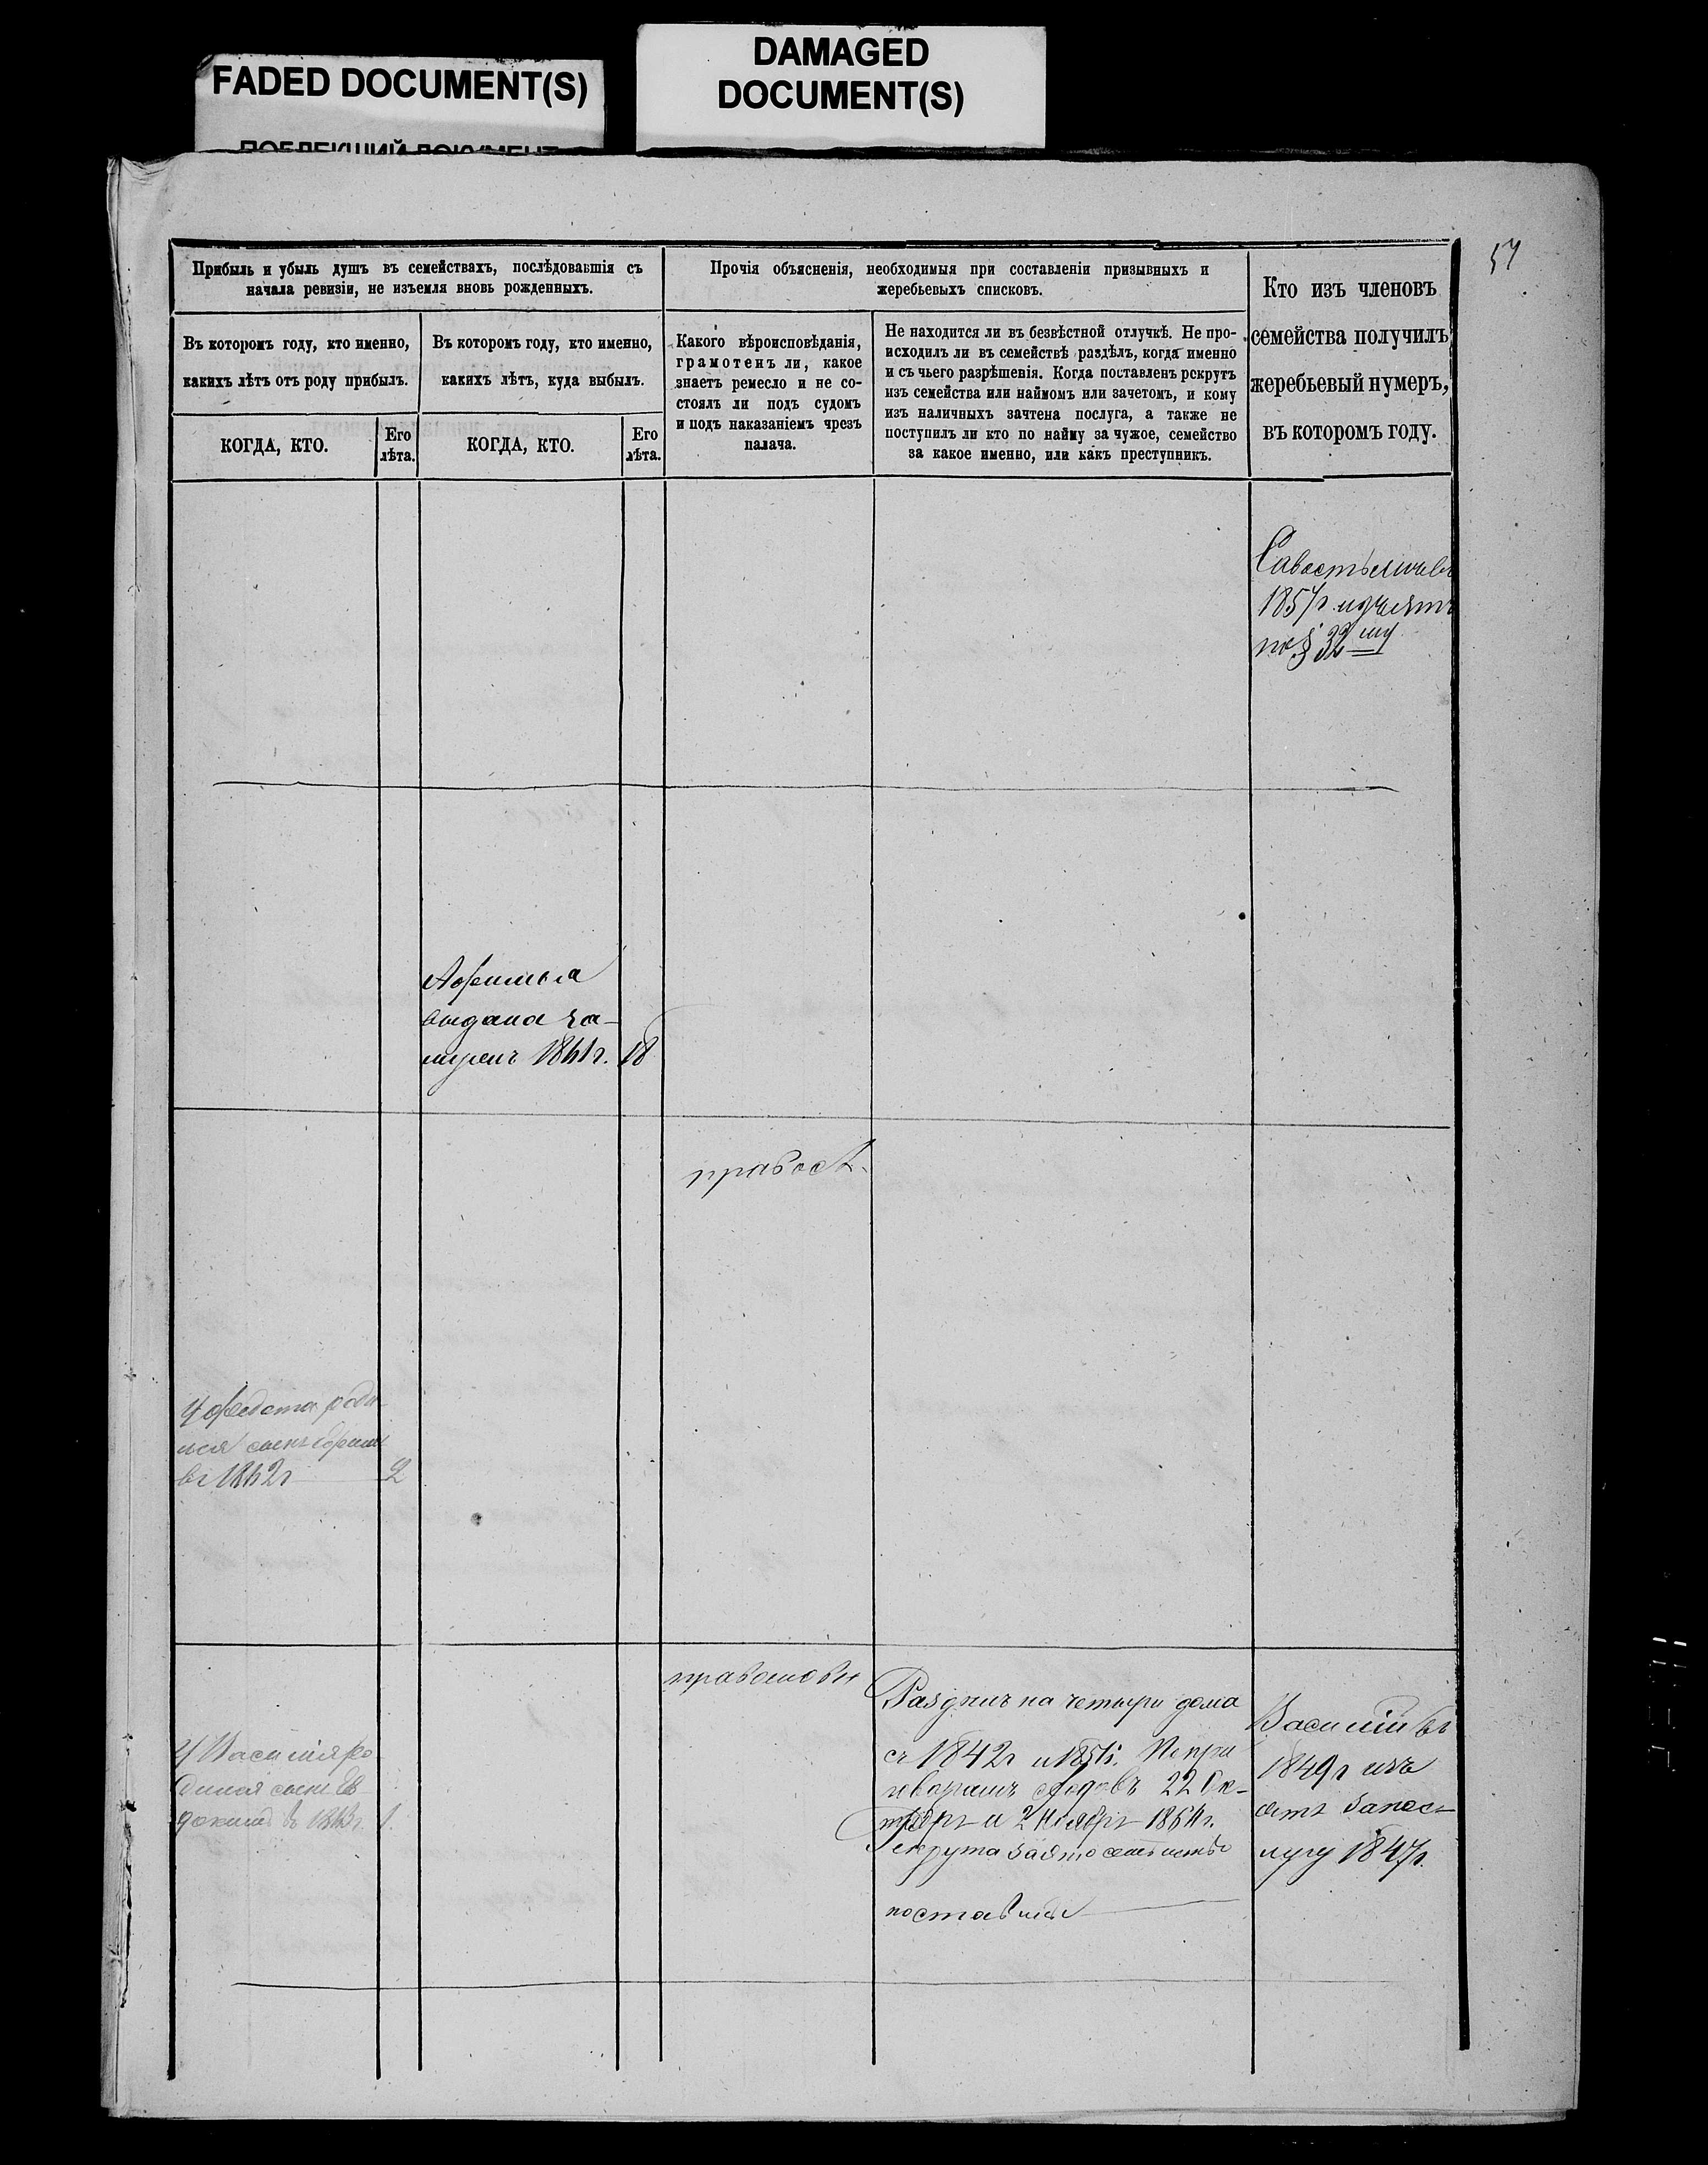 FADED DOCUMENT(S)
DAMAGED
DOCUMENT(S)
57
Прибыль и убыль душъ въ семействахъ, послѣдовавшія съ
начала ревизіи, не изъемля вновь рожденныхъ.
Прочія объясненія, необходимыя при составленіи призывныхъ и
жеребьевыхъ списковъ.
Кто изъ членовъ
семейства получилъ
жеребьевый нумеръ,
въ которомъ году.
Въ которомъ году, кто именно,
какихъ лѣтъ отъ роду прибылъ.
Въ которомъ году, кто именно,
какихъ лѣтъ, куда выбылъ.
Какого вѣроисповѣданія,
грамотенъ ли, какое
знаетъ ремесло и не со-
стоялъ ли подъ судомъ
и подъ наказаніемъ чрезъ
палача.
Не находится ли въ безвѣстной отлучкѣ. Не про-
исходилъ ли въ семействѣ раздѣлъ, когда именно
и съ чьего разрѣшенія. Когда поставленъ рекрутъ
изъ семейства или наймомъ или зачетомъ, и кому
изъ наличныхъ зачтена послуга, а также не
поступилъ ли кто по найму за чужое, семейство
за какое именно, или какъ преступникъ.
КОГДА, КТО.
Его
лѣта.
КОГДА, КТО.
Его
лѣта.
1857г изъятъ
по § 32му
выдана за-
мужъ 1861г. 18
правосл.
У Федота роди
лся сынъ
въ 1862г 2
православн
Разднлъ на четыри дома
съ 1842г и По при
говорамъ 22 Ок-
тября и 2 Ноября 1864г.
Рекрута за это семейство
поставили
У Василія ро
дился сынъ Ев
докимъ въ 1863г. 1.
Василій въ
1849г изъ
ятъ запос-
лугу 1847г.